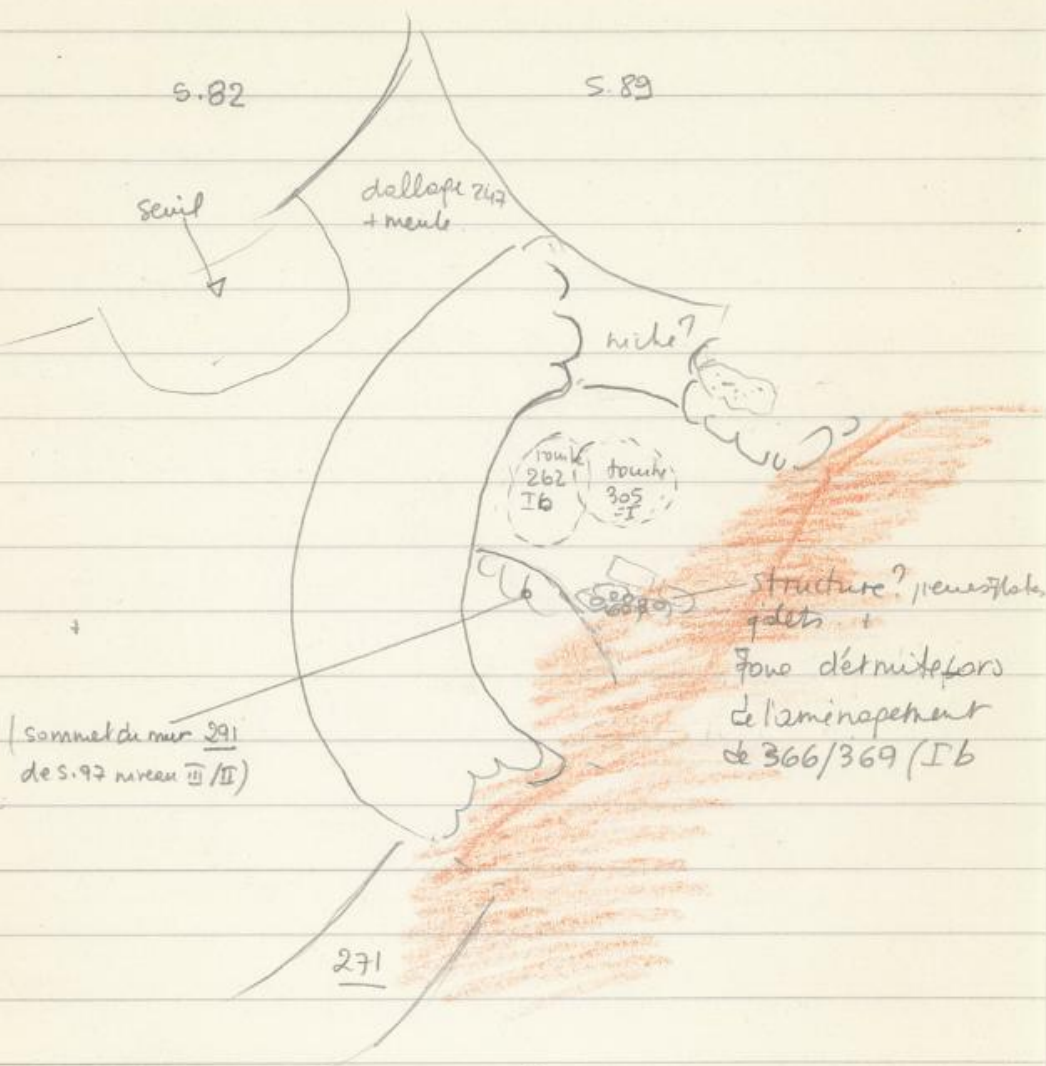 S.82
S.89
seuil
dallage 247
+ meule
niche?
tombe
262
Ib
tombe
305
=I
structure? pierres plates
galets +
Zone détruite lors
de l'aménagement
de 366/369 (Ib
(sommet du mur 291
de S.97 niveau III/II)
271